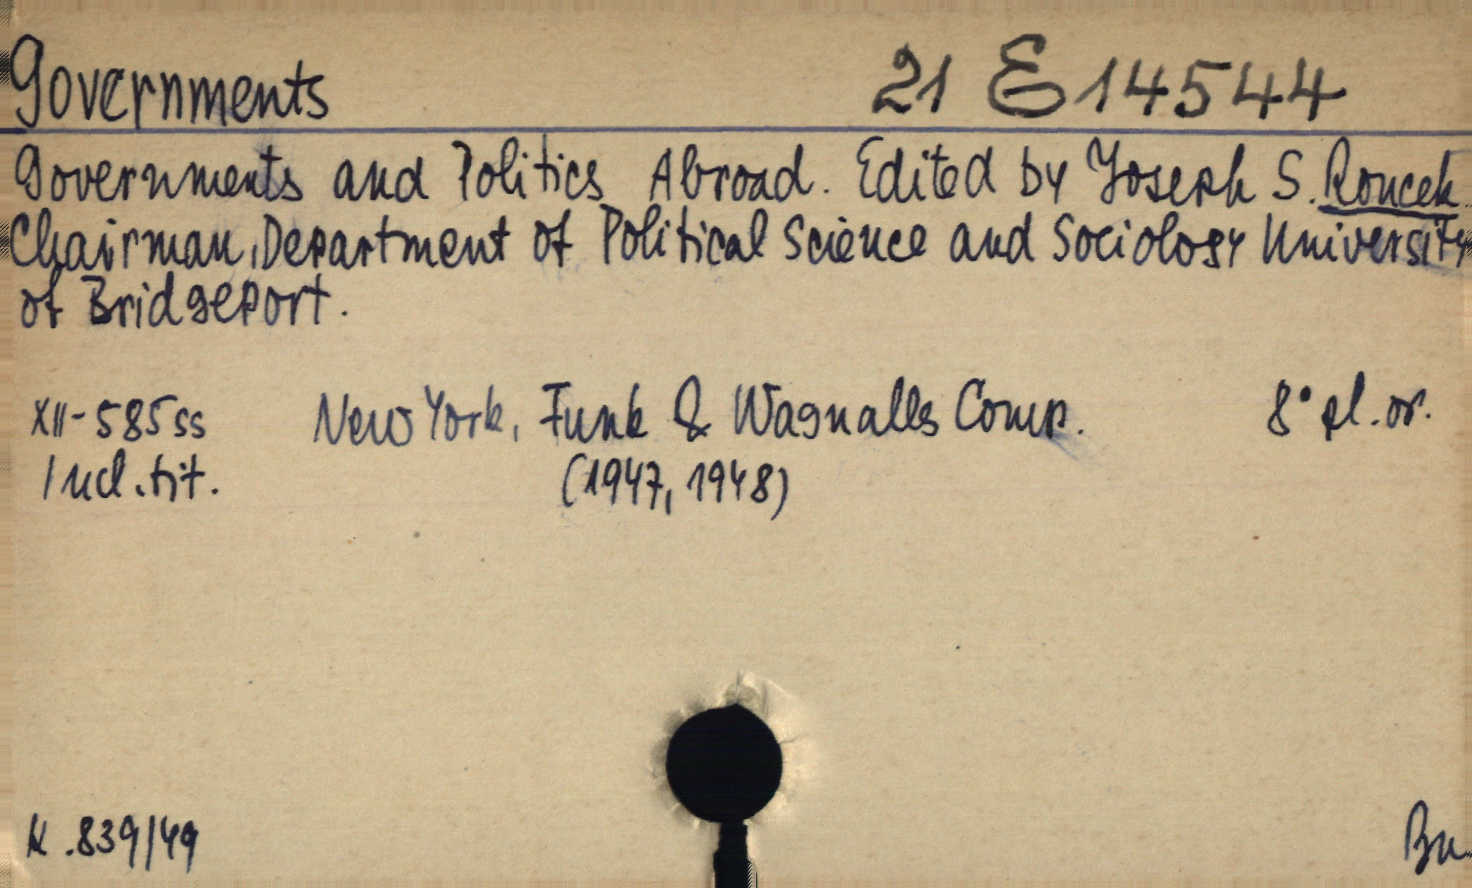 Governments 21 E 14544
Governments and Politics Abroad. Edited by Joseph S. Roucek
Chairman, Department of Political Science and Sociology University
of Bridgeport.
XII-585 ss New York, Funk & Wagnalls Comp. 8° pl. or.
Incl. tit. (1947, 1948)
N. 839/49 Bu